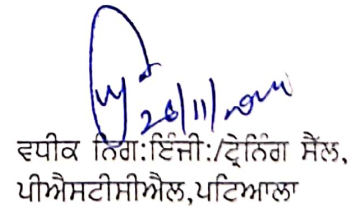 28/11/
ਵਧੀਕ ਨਿਗ:ਇੰਜੀ:/ਟ੍ਰੇਨਿੰਗ ਸੈੱਲ,
ਪੀਐਸਟੀਸੀਐਲ,ਪਟਿਆਲਾ